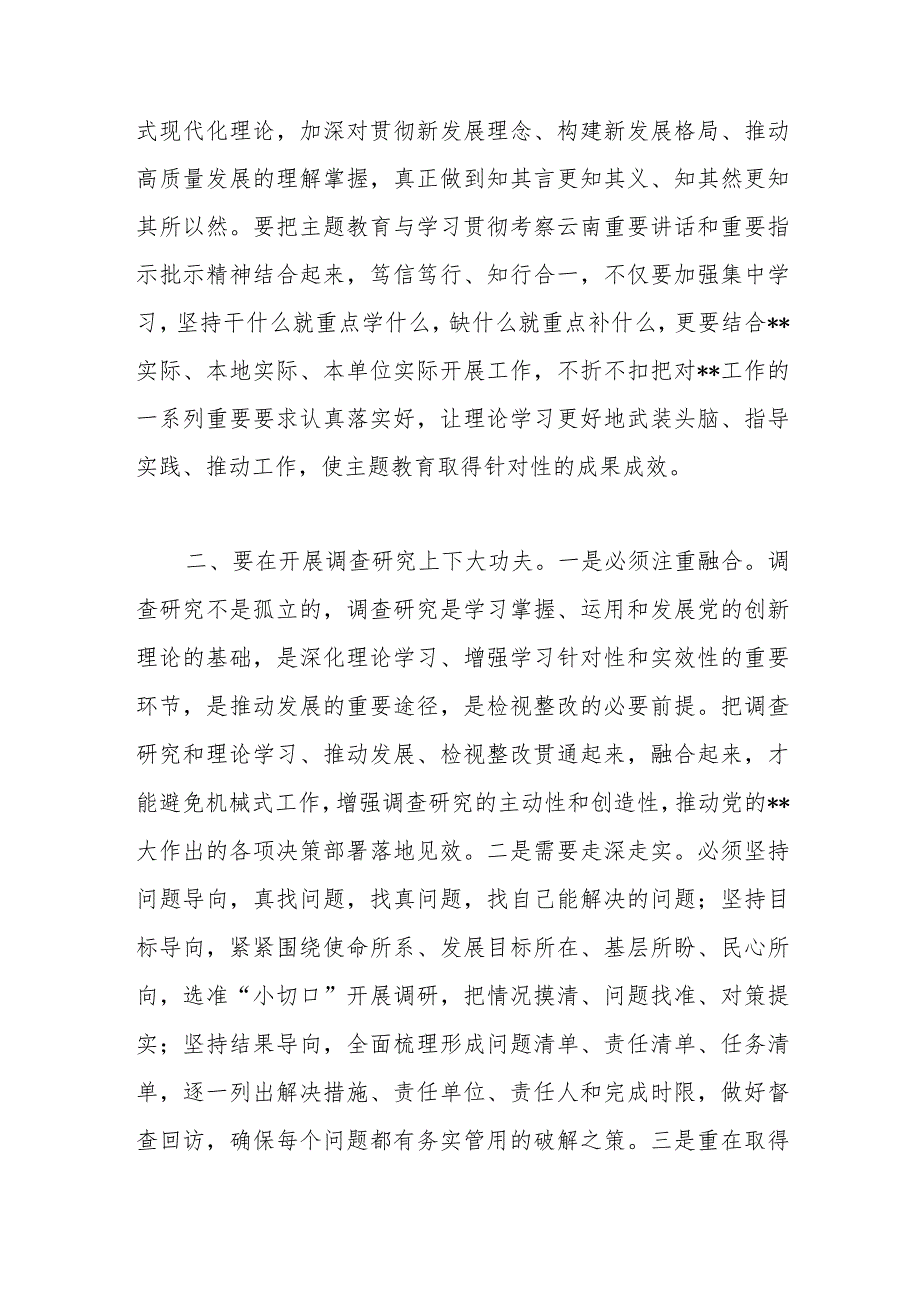 式现代化理论，加深对贯彻新发展理念、构建新发展格局、推动
高质量发展的理解掌握，真正做到知其言更知其义、知其然更知
其所以然。要把主题教育与学习贯彻考察云南重要讲话和重要指
示批示精神结合起来，笃信笃行、知行合一，不仅要加强集中学
习，坚持干什么就重点学什么，缺什么就重点补什么，更要结合**
实际、本地实际、本单位实际开展工作，不折不扣把对**工作的
一系列重要要求认真落实好，让理论学习更好地武装头脑、指导
实践、推动工作，使主题教育取得针对性的成果成效。
二、要在开展调查研究上下大功夫。一是必须注重融合。调
查研究不是孤立的，调查研究是学习掌握、运用和发展党的创新
理论的基础，是深化理论学习、增强学习针对性和实效性的重要
环节，是推动发展的重要途径，是检视整改的必要前提。把调查
研究和理论学习、推动发展、检视整改贯通起来，融合起来，才
能避免机械式工作，增强调查研究的主动性和创造性，推动党的**
大作出的各项决策部署落地见效。二是需要走深走实。必须坚持
问题导向，真找问题，找真问题，找自己能解决的问题；坚持目
标导向，紧紧围绕使命所系、发展目标所在、基层所盼、民心所
向，选准“小切口”开展调研，把情况摸清、问题找准、对策提
实；坚持结果导向，全面梳理形成问题清单、责任清单、任务清
单，逐一列出解决措施、责任单位、责任人和完成时限，做好督
查回访，确保每个问题都有务实管用的破解之策。三是重在取得